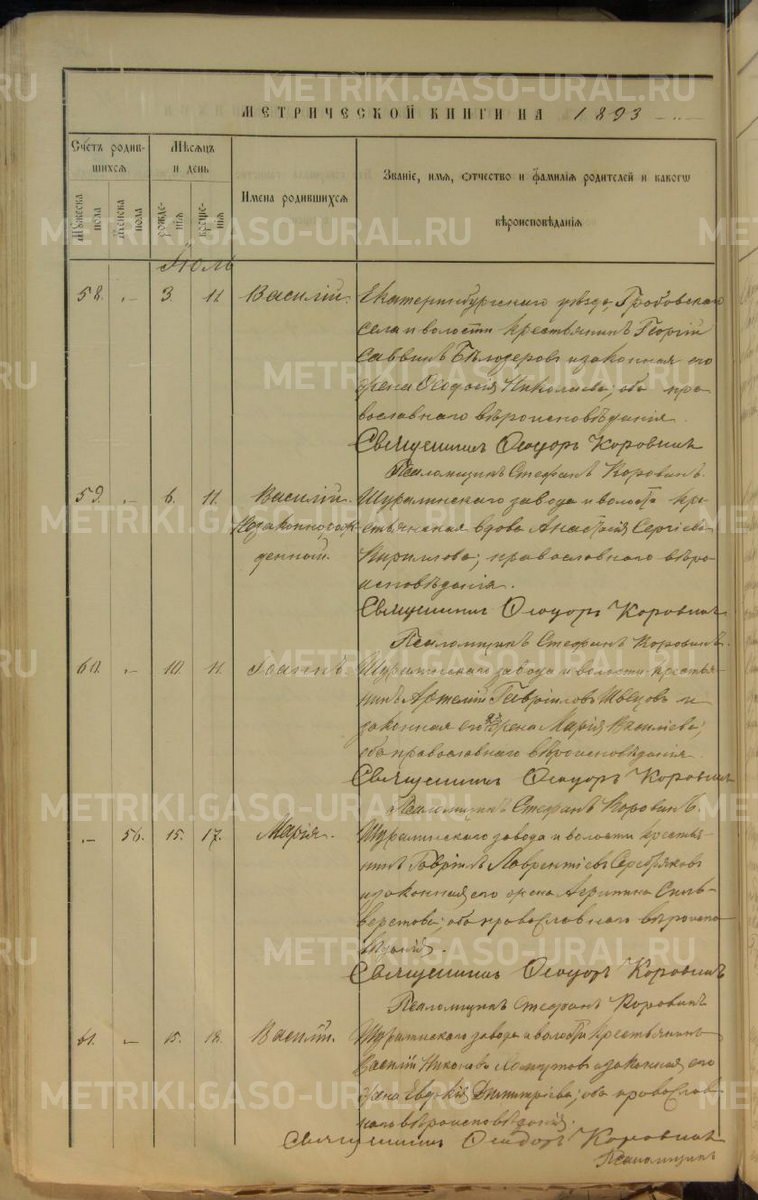 МЕТРИЧЕСКОЙ КНИГИ НА 1893
Счетъ родив-
шихся
Мѣсяцъ
и день
Имена родившихся
Званіе, имя, отчество и фамилія родителей и какогѡ
вѣроисповѣданія
Мужеска
пола
Женска
пола
рожде-
нія
креще-
нія
Іюль
58. „ 3. 11. Василій. Екатеринбургскаго уѣзда, Гробовскаго
села и волости крестьянинъ Георгій
Саввинъ Бѣлозеровъ и законная его
жена Ѳеодосія Николаева; оба пра-
вославнаго вѣроисповѣданія.
Священникъ Ѳеодоръ Коровинъ
Псаломщикъ Стефанъ Коровинъ.
59. „ 6. 11. Василій. Шуралинскаго завода и волости кре-
Незаконнорож- стьянская вдова Анастасія Сергіева
денный. Кириллова; православнаго вѣро-
исповѣданія.
Священникъ Ѳеодоръ Коровинъ
Псаломщикъ Стефанъ Коровинъ.
60. „ 10. 11. Іоаннъ. Шуралинскаго завода и волости крестья-
нинъ Артемій Гавріиловъ Швецовъ и
законная его жена Марія Василіева;
оба православнаго вѣроисповѣданія
Священникъ Ѳеодоръ Коровинъ
Псаломщикъ Стефанъ Коровинъ.
„ 56. 15. 17. Марія. Шуралинскаго завода и волости крестья-
нинъ Гавріилъ Лаврентіевъ Серебряковъ
и законная его жена Агрипина Силь-
верстова; оба православнаго вѣроиспо-
вѣданія.
Священникъ Ѳеодоръ Коровинъ
Псаломщикъ Стефанъ Коровинъ
61. „ 15. 18. Василій. Шуралинскаго завода и волости крестьянинъ
Василій Николаевъ Хомутовъ и законная его
жена Евдокія Димитріева; оба православ-
наго вѣроисповѣданія.
Священникъ Ѳеодоръ Коровинъ
Псаломщикъ
METRIKI.GASO-URAL.RU